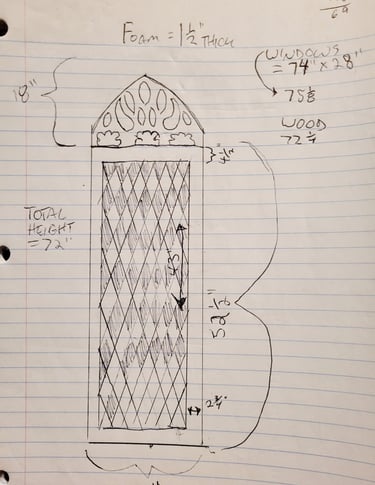 69
FOAM = 1 1/2" THICK
WINDOWS
= 74" x 28"
75 1/8
WOOD
72 1/4
18"
4 1/2"
TOTAL
HEIGHT
= 72"
43"
52 1/2"
2 3/4"